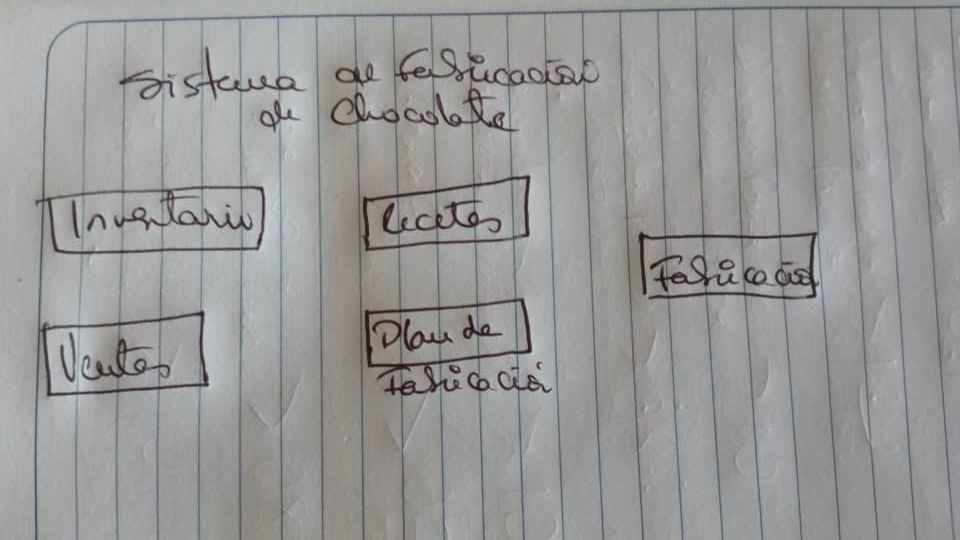 Sistema de Fabricación
de Chocolate
Inventario
Recetas
Fabricación
Ventas
Plan de
Fabricación